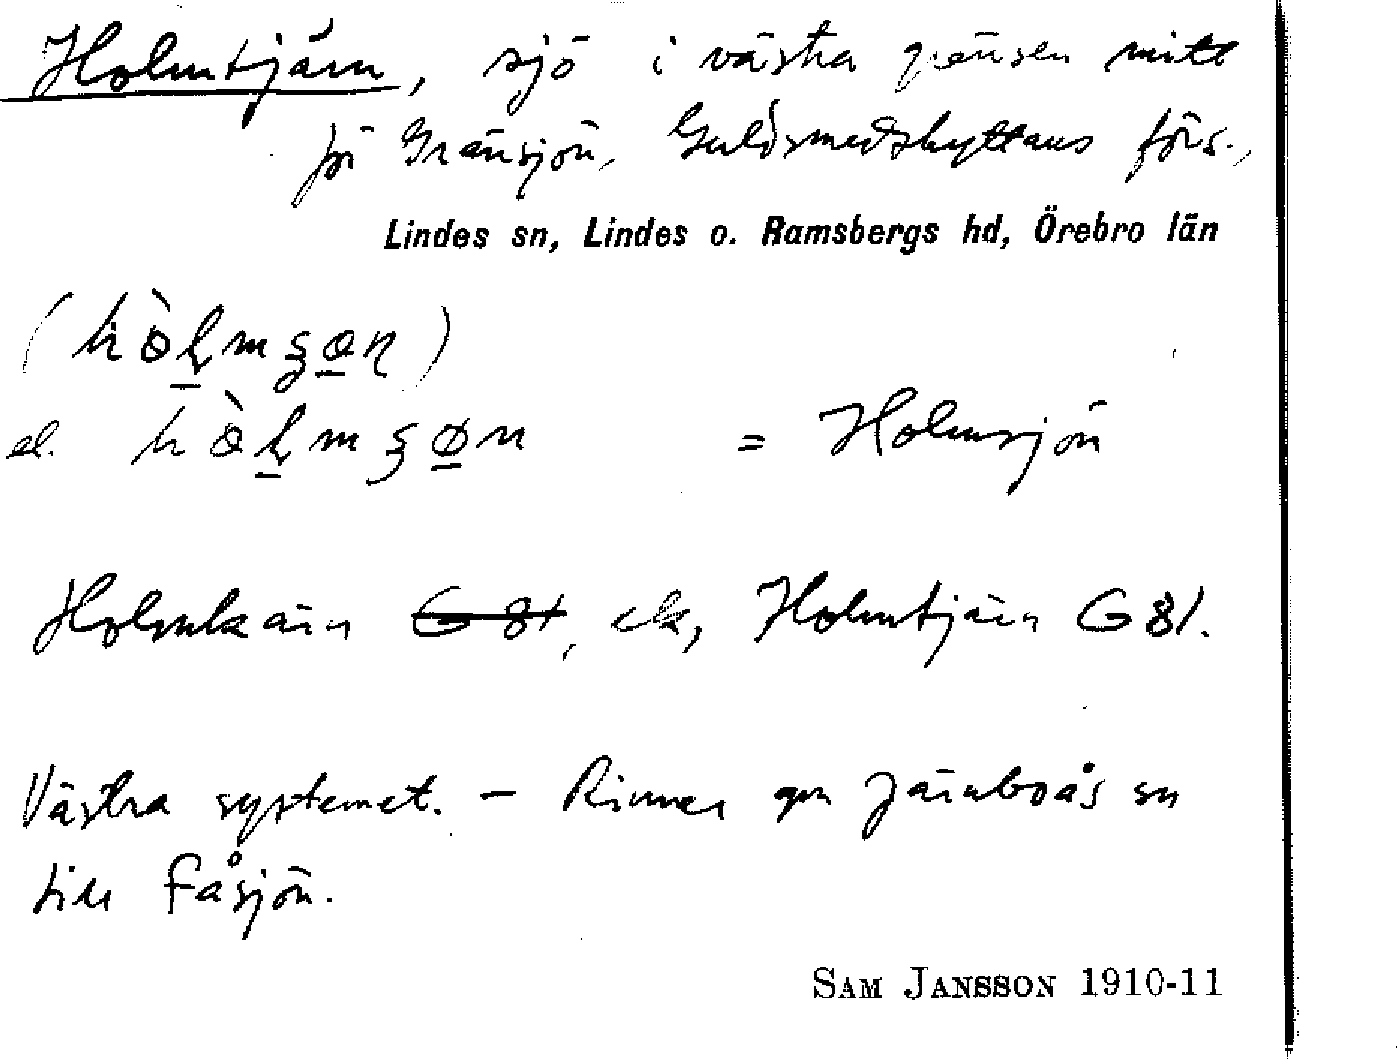 Holmtjärn, sjö i västra gränsen mitt
på Gränsjön, Guldsmedshyttans förs.,
Lindes sn, Lindes o. Ramsbergs hd, Örebro län
el. = Holmsjön
Holmkärn G 81, ek, Holmtjärn G 81.
Västra systemet. – Rinner gm Järnboås sn
till Fåsjön.
SAM JANSSON 1910-11